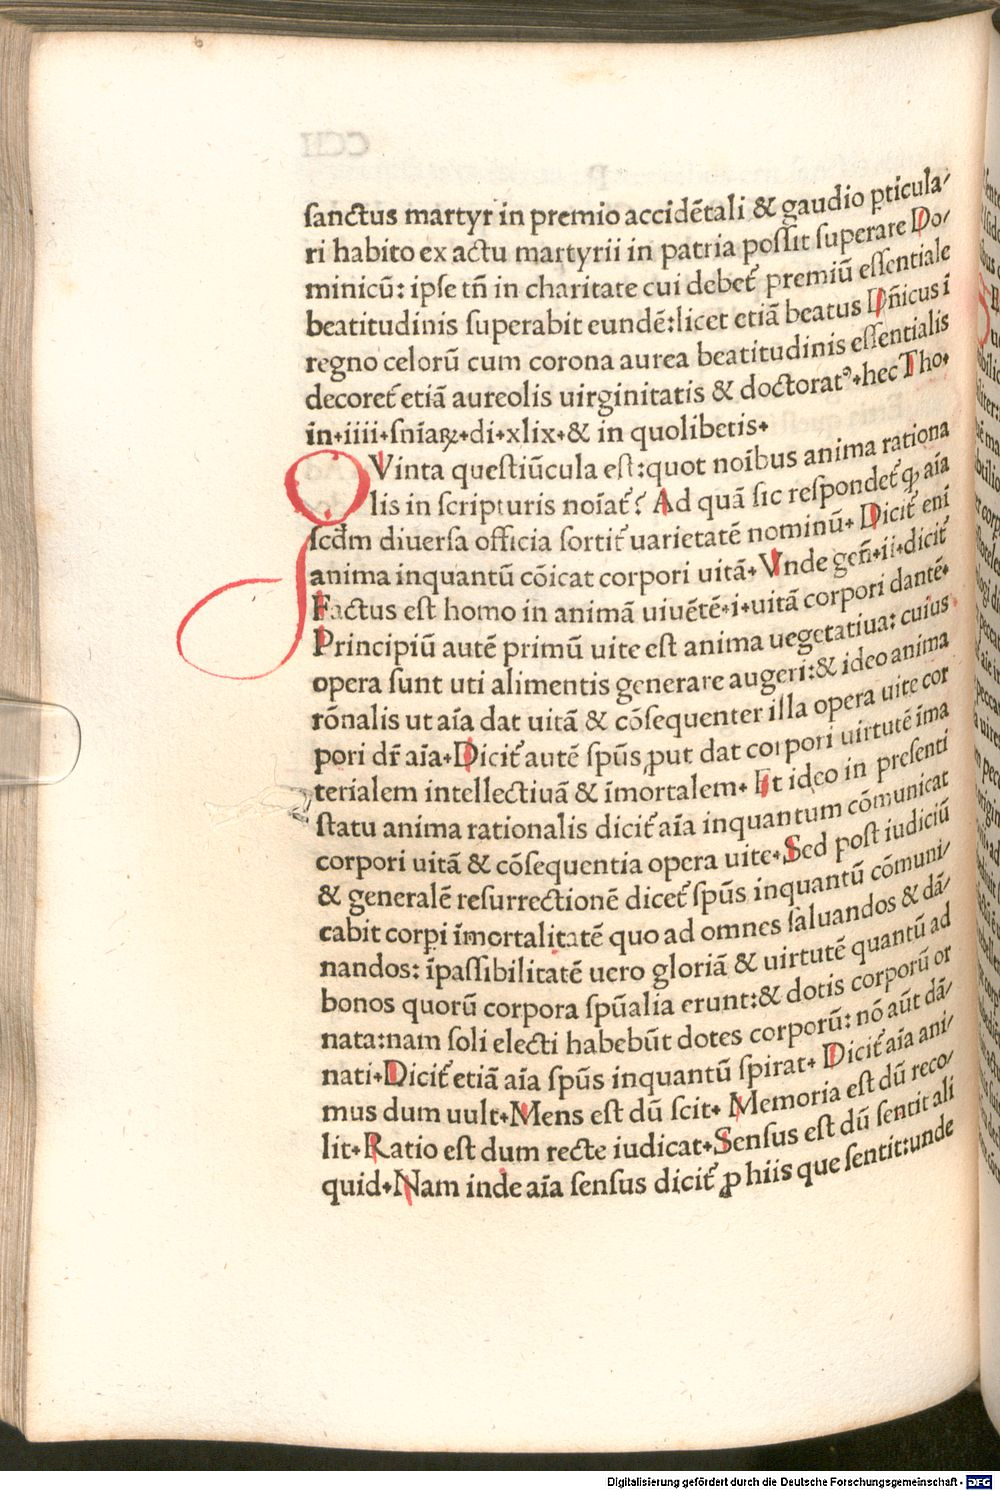 sanctus martyr in premio accidētali & gaudio pticula/
ri habito ex actu martyrii in patria possit superare Do/
minicū: ipse tñ in charitate cui debet᷑ premiū essentiale
beatitudinis superabit eundē:licet etiā beatus Dñicus ī
regno celorū cum corona aurea beatitudinis essentialis
decoret᷑ etiā aureolis uirginitatis & doctoratꝰ.hec Tho.
in.iiii.sniaꝝ.di.xlix.& in quolibetis.
QVinta questiūcula est:quot noībus anima rationa
lis in scripturis noīat᷑? Ad quā sic respondet᷑ ꝙ aīa
scd̄m diuersa officia sortit᷑ uarietatē nominū. Dicit᷑ enī
anima inquantū cōicat corpori uitā. Vnde geñ.ii.dicit᷑
Factus est homo in animā uiuētē.i.uitā corpori dantē.
Principiū autē primū uite est anima uegetatiua: cuius
opera sunt uti alimentis generare augeri:& ideo anima
rōnalis ut aīa dat uitā & cōsequenter illa opera uite cor
pori dr̄ aīa.Dicit᷑ autē spūs ꝓut dat corpori uirtutē īma
terialem intellectiuā & īmortalem. Et ideo in presenti
statu anima rationalis dicit᷑ aīa inquantum cōmunicat
corpori uitā & cōsequentia opera uite.Sed post iudiciū
& generalē resurrectionē dicet᷑ spūs inquantū cōmuni/
cabit corpi īmortalitatē quo ad omnes saluandos & dā/
nandos: īpassibilitatē uero gloriā & uirtutē quantū ad
bonos quorū corpora spūalia erunt:& dotis corporū or
nata:nam soli electi habebūt dotes corporū: nō aūt dā/
nati.Dicit᷑ etiā aīa spūs inquantū spirat. Dicit᷑ aīa ani/
mus dum uult.Mens est dū scit. Memoria est dū reco/
lit.Ratio est dum recte iudicat.Sensus est dū sentit ali
quid.Nam inde aīa sensus dicit᷑ ꝓ hiis que sentit:unde
Digitalisierung gefördert durch die Deutsche Forschungsgemeinschaft - DFG